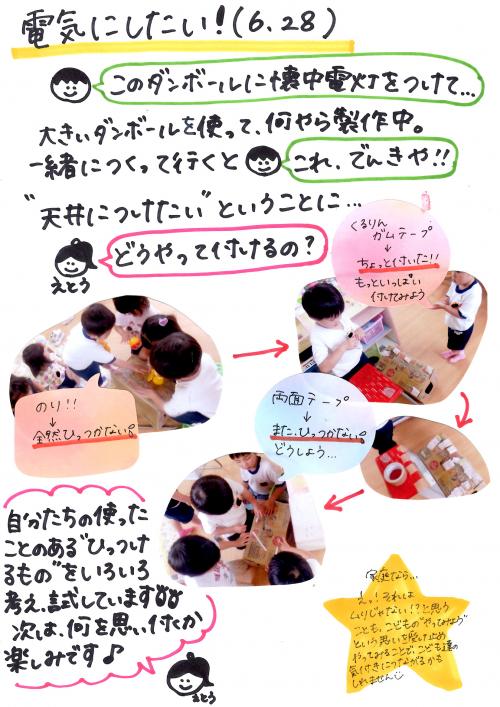 電気にしたい!(6.28)
このダンボールに懐中電灯をつけて…
大きいダンボールを使って、何やら製作中。
一緒につくって行くと
これ、でんきや!!
"天井につけたい"ということに…
どうやって付けるの?
えとう
くるりん
ガムテープ
↓
ちょっと付いた!!
もっといっぱい
付けてみよう
のり!!
↓
全然ひっつかない。
両面テープ
↓
また、ひっつかない。
どうしよう…
自分たちの使った
ことのある"ひっつけ
るもの"をいろいろ
考え、試しています
次は、何を思い付くか
楽しみです♪
えとう
家庭なら…
えっ!それは
ムリじゃない!?と思う
ことも、こどもの"やってみよう"
という思いを受け止め
やってみることで、こども達の
気付きにつながるかも
しれません